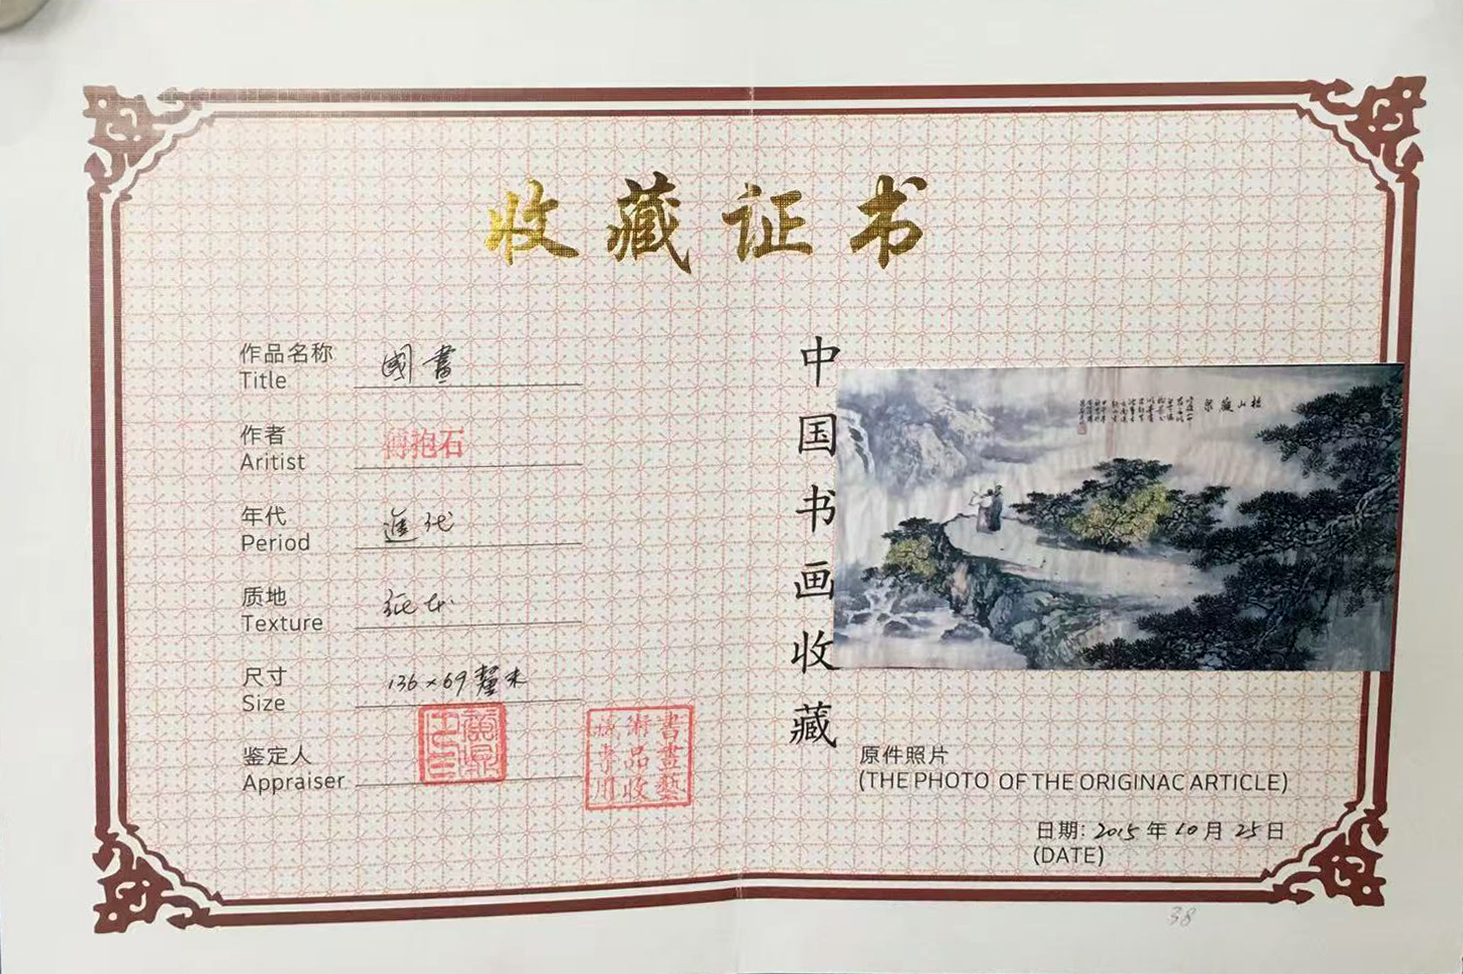 收藏证书
作品名称 國畫
Title
作者 傅抱石
Aritist
年代 近代
Period
质地 纸本
Texture
尺寸 136×69厘米
Size
鉴定人
Appraiser
書畫藝
術品收
藏專用
中国书画收藏
原件照片
(THE PHOTO OF THE ORIGINAC ARTICLE)
日期: 2015年10月25日
(DATE)
38